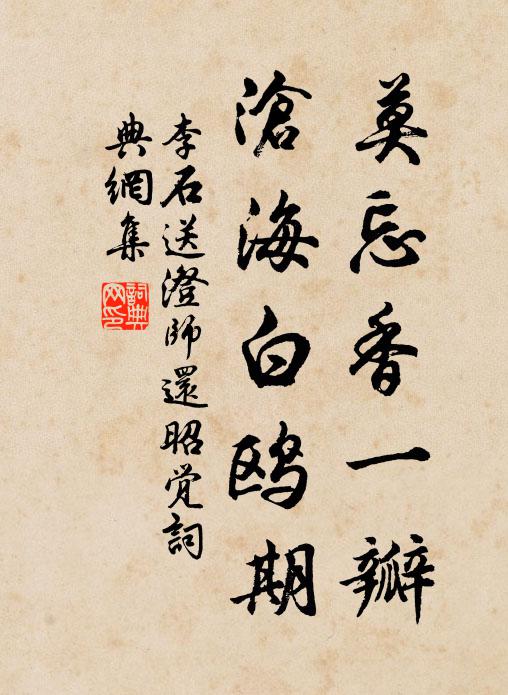 莫忘香一瓣
滄海白鸥期
李石送澄師還昭觉詞
典網集
詞典
网印